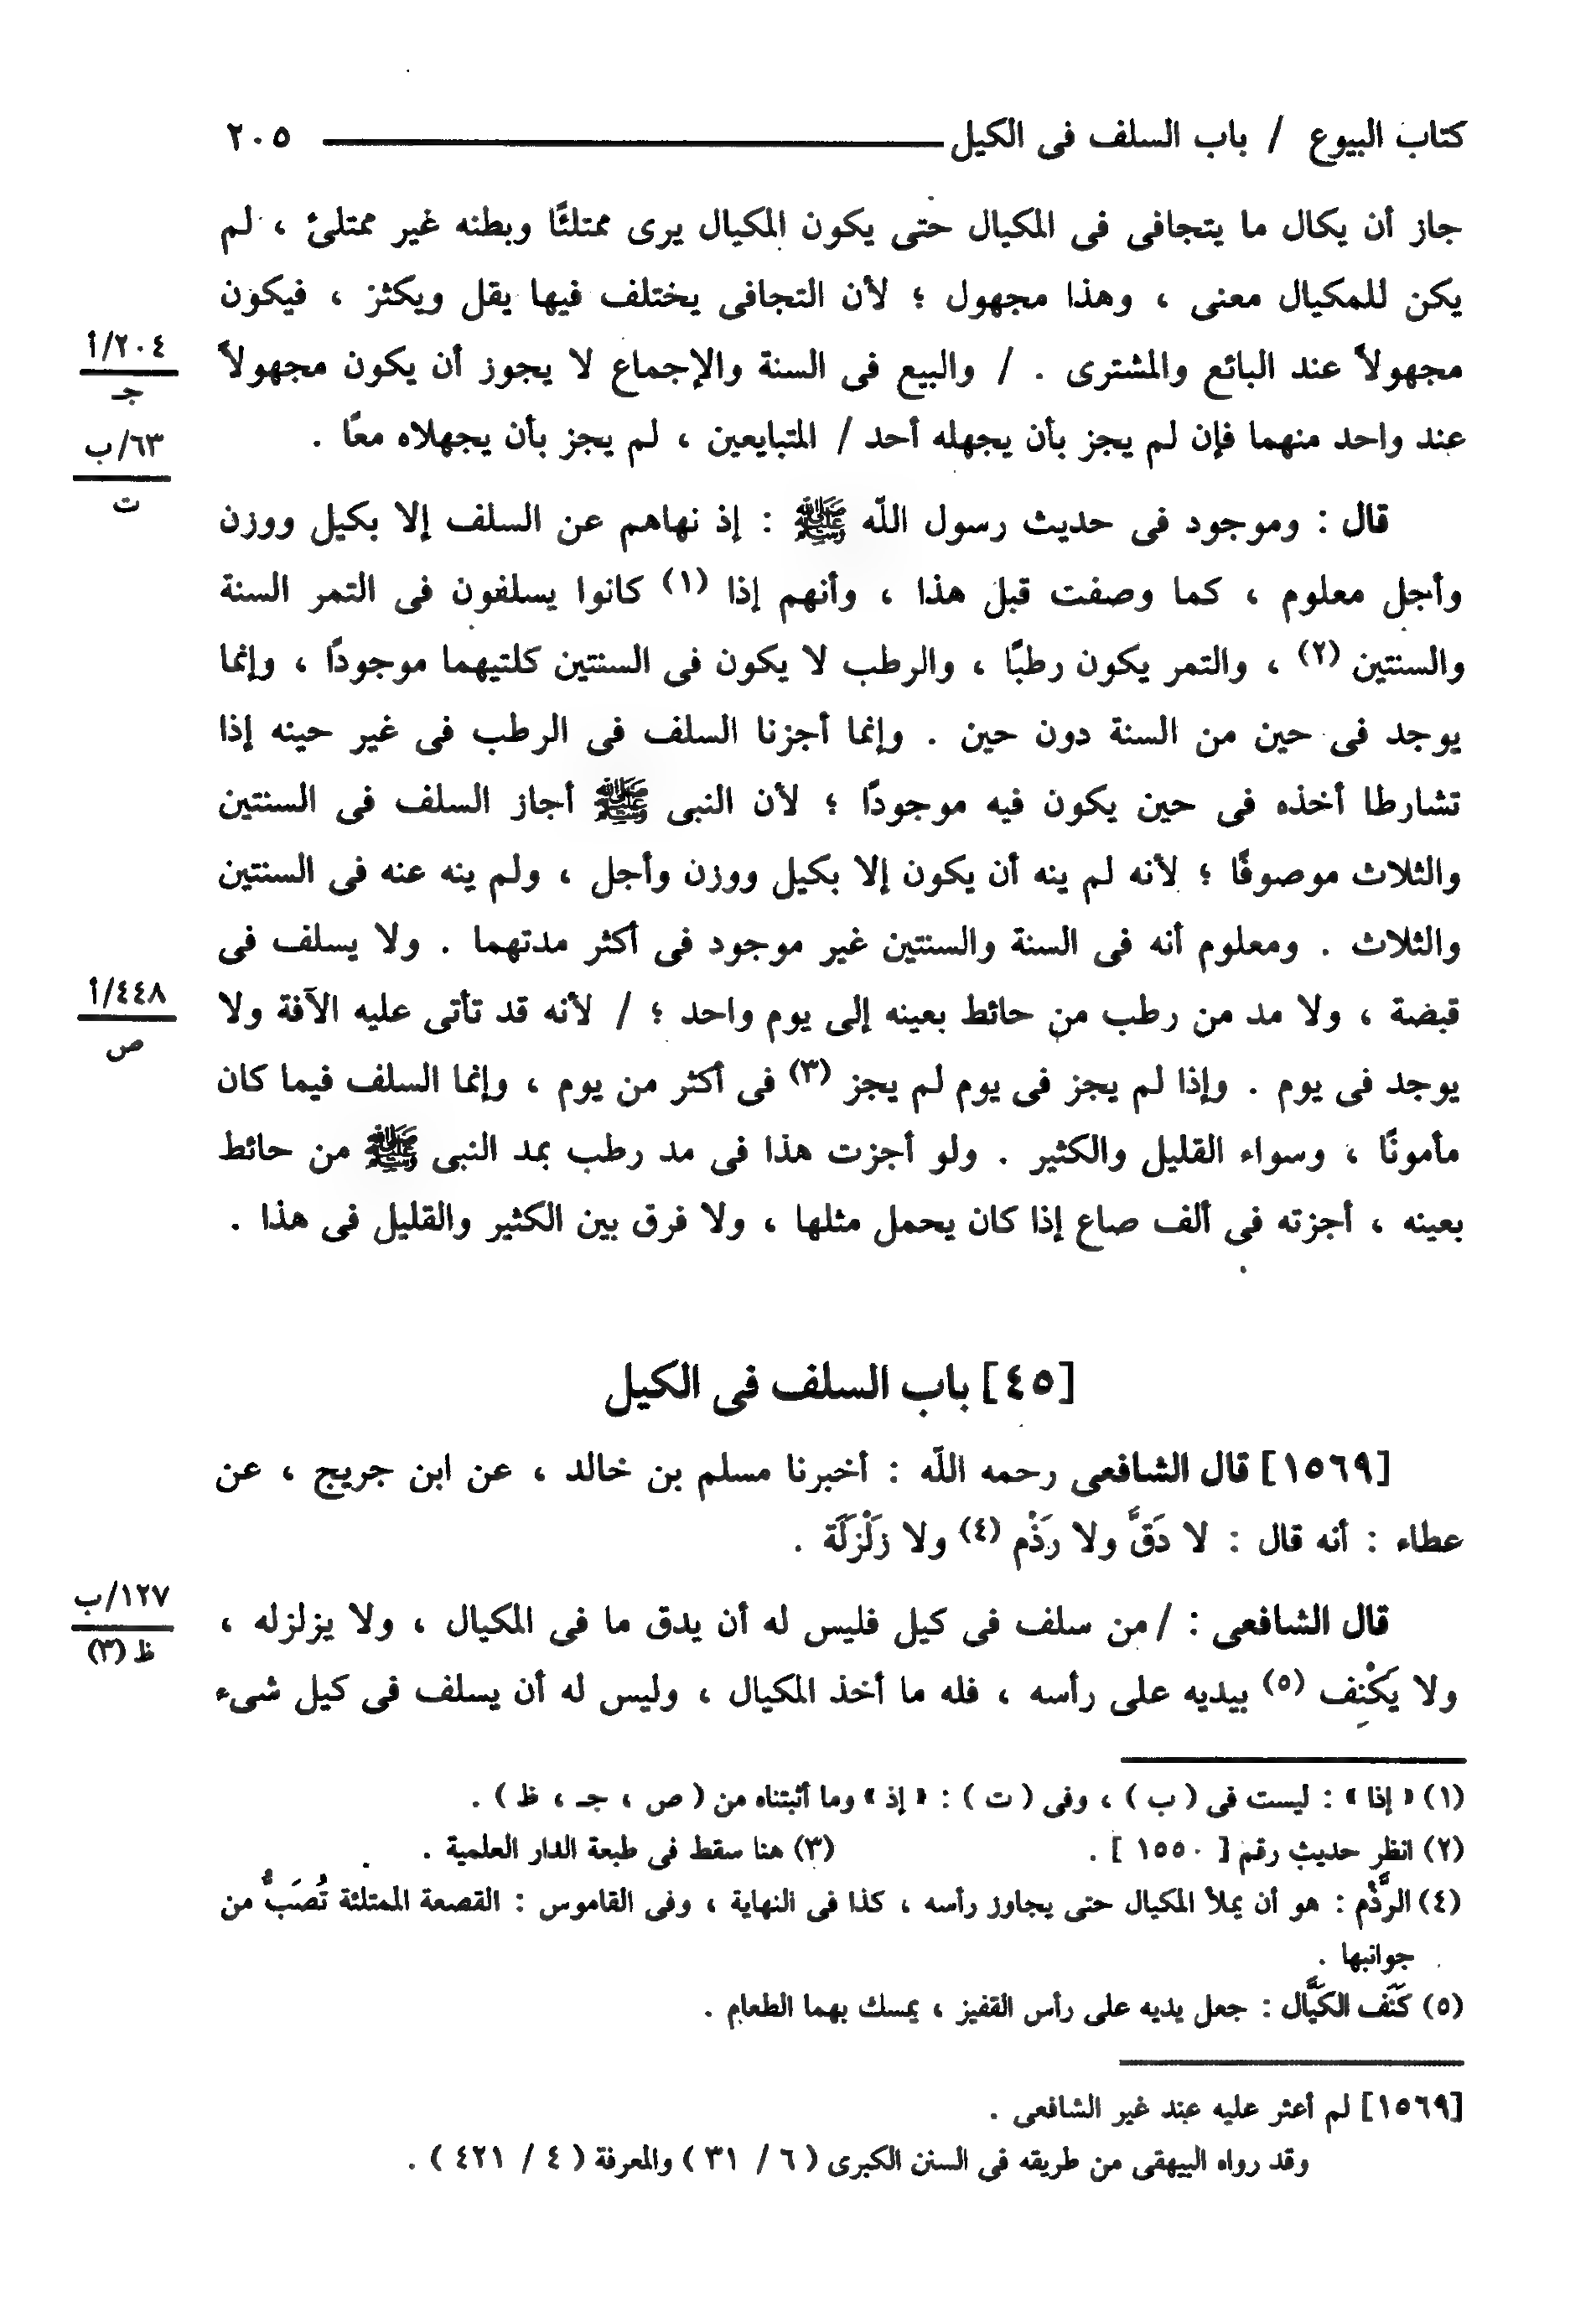 كتاب البيوع / باب السلف فى الكيل ٢٠٥
جاز أن يكال ما يتجافى فى المكيال حتى يكون المكيال يرى ممتلئًا وبطنه غير ممتلئ ، لم
يكن للمكيال معنى ، وهذا مجهول ؛ لأن التجافى يختلف فيها يقل ويكثر ، فيكون
مجهولاً عند البائع والمشترى . / والبيع فى السنة والإجماع لا يجوز أن يكون مجهولاً
٢٠٤/أ
جـ
عند واحد منهما فإن لم يجز بأن يجهله أحد / المتبايعين ، لم يجز بأن يجهلاه معًا .
٦٣/ب
ت
قال : وموجود فى حديث رسول اللّه ﷺ : إذ نهاهم عن السلف إلا بكيل ووزن
وأجل معلوم ، كما وصفت قبل هذا ، وأنهم إذا (١) كانوا يسلفون فى التمر السنة
والسنتين (٢) ، والتمر يكون رطبًا ، والرطب لا يكون فى السنتين كلتيهما موجودًا ، وإنما
يوجد فى حين من السنة دون حين . وإنما أجزنا السلف فى الرطب فى غير حينه إذا
تشارطا أخذه فى حين يكون فيه موجودًا ؛ لأن النبى ﷺ أجاز السلف فى السنتين
والثلاث موصوفًا ؛ لأنه لم ينه أن يكون إلا بكيل ووزن وأجل ، ولم ينه عنه فى السنتين
والثلاث . ومعلوم أنه فى السنة والسنتين غير موجود فى أكثر مدتهما . ولا يسلف فى
قبضة ، ولا مد من رطب من حائط بعينه إلى يوم واحد ؛ / لأنه قد تأتى عليه الآفة ولا
٤٤٨/أ
ص
يوجد فى يوم . وإذا لم يجز فى يوم لم يجز (٣) فى أكثر من يوم ، وإنما السلف فيما كان
مأمونًا ، وسواء القليل والكثير . ولو أجزت هذا فى مد رطب بمد النبى ﷺ من حائط
بعينه ، أجزته فى ألف صاع إذا كان يحمل مثلها ، ولا فرق بين الكثير والقليل فى هذا .
[٤٥] باب السلف فى الكيل
[١٥٦٩] قال الشافعى رحمه اللّه : أخبرنا مسلم بن خالد ، عن ابن جريج ، عن
عطاء : أنه قال : لا دَقَّ ولا رَذْم (٤) ولا زَلْزَلَة .
قال الشافعى : / من سلف فى كيل فليس له أن يدق ما فى المكيال ، ولا يزلزله ،
١٢٧/ب
ظ (٣)
ولا يَكْنِف (٥) بيديه على رأسه ، فله ما أخذ المكيال ، وليس له أن يسلف فى كيل شىء
(١) « إذا » : ليست فى ( ب ) ، وفى ( ت ) : « إذ » وما أثبتناه من ( ص ، جـ ، ظ ) .
(٢) انظر حديث رقم [ ١٥٥٠ ] . (٣) هنا سقط فى طبعة الدار العلمية .
(٤) الرَّذْم : هو أن يملأ المكيال حتى يجاوز رأسه ، كذا فى النهاية ، وفى القاموس : القصعة الممتلئة تُصَبُّ من
جوانبها .
(٥) كَنَف الكَيَّال : جعل يديه على رأس القفيز ، يمسك بهما الطعام .
[١٥٦٩] لم أعثر عليه عند غير الشافعى .
وقد رواه البيهقى من طريقه فى السنن الكبرى ( ٦ / ٣١ ) والمعرفة ( ٤ / ٤٢١ ) .